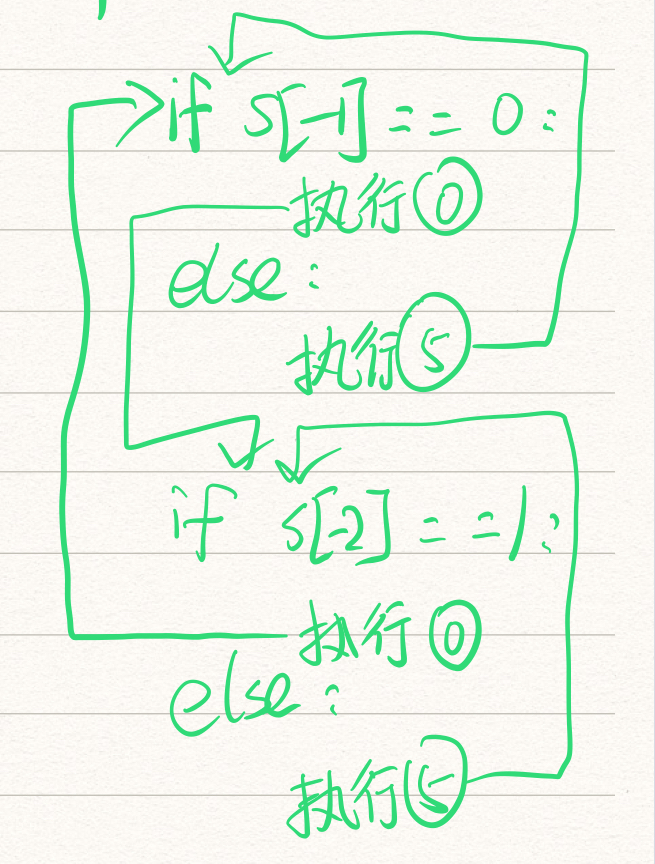 if s[-1] == 0:
执行⓪
else:
执行⑤
if s[-2] == 1:
执行⓪
else:
执行⑤